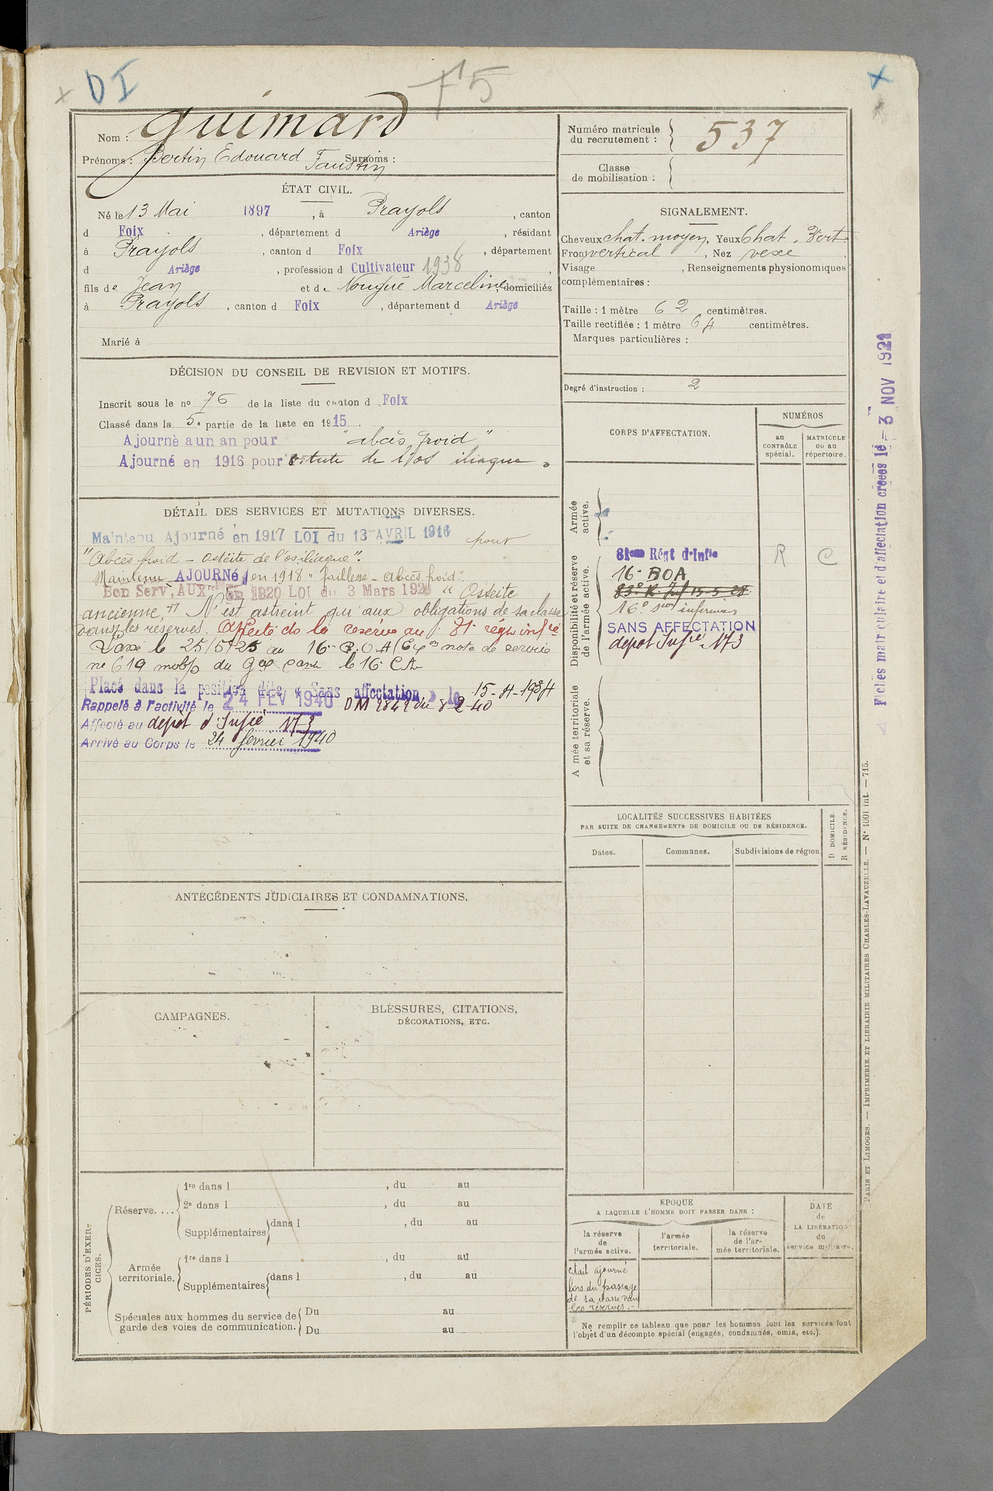 DI
F5
Nom : Guimard
Prénoms : Bertin Edouard Faustin Surnoms :
Numéro matricule du recrutement : 537
Classe de mobilisation :
ÉTAT CIVIL.
Né le 13 Mai 1897, à Prayols, canton
d Foix, département d Ariège, résidant
à Prayols, canton d Foix, département
d Ariège, profession d Cultivateur 1938
fils de Jean et de Nougué Marceline, domiciliés
à Prayols, canton d Foix, département d Ariège
Marié à
SIGNALEMENT.
Cheveux chat. moyen, Yeux Chat. Vert
Front vertical, Nez vexe
Visage , Renseignements physionomiques
complémentaires :
Taille : 1 mètre 62 centimètres.
Taille rectifiée : 1 mètre 64 centimètres.
Marques particulières :
Degré d'instruction : 2
DÉCISION DU CONSEIL DE REVISION ET MOTIFS.
Inscrit sous le no 76 de la liste du canton d Foix
Classé dans la 5e partie de la liste en 1915
Ajourné à un an pour "abcès froid"
Ajourné en 1916 pour ostéite de l'os iliaque.
DÉTAIL DES SERVICES ET MUTATIONS DIVERSES.
Maintenu Ajourné en 1917 LOI du 13 AVRIL 1916 pour
"Abcès froid - ostéite de l'os iliaque".
Maintenu AJOURNÉ en 1918 "Faiblesse - abcès froid"
Bon Serv. AUXre En 1920 LOI du 3 Mars 1920 "Ostéite
ancienne" N'est astreint qu'aux obligations de sa classe
dans les réserves. Affecté dans la réserve au 81e régt infie
Passé le 25/5/25 au 16e B.O.A (Exon note de service
no 619 mob/p du Gal Comt le 16e CA
Placé dans la position dite "Sans affectation" le 15-4-1934
Rappelé à l'activité le 24 FEV 1940 DM 2842 du 8-2-40
Affecté au dépot d'Infie 173
Arrivé au Corps le 24 février 1940
CORPS D'AFFECTATION.
NUMÉROS
au CONTRÔLE spécial.
MATRICULE ou au répertoire.
Armée active.
Disponibilité et réserve de l'armée active.
81eme Régt d'Infie
R
C
16e BOA
16e son infirmiers
SANS AFFECTATION
dépot Infie 173
Armée territoriale et sa réserve.
LOCALITÉS SUCCESSIVES HABITÉES
PAR SUITE DE CHANGEMENTS DE DOMICILE OU DE RÉSIDENCE.
Dates.
Communes.
Subdivisions de région.
D DOMICILE.
R RÉSIDENCE.
ANTÉCÉDENTS JUDICIAIRES ET CONDAMNATIONS.
CAMPAGNES.
BLESSURES, CITATIONS,
DÉCORATIONS, ETC.
PÉRIODES D'EXERCICES.
Réserve....
1re dans l , du au
2e dans l , du au
Supplémentaires dans l , du au
Armée territoriale.
1re dans l , du au
Supplémentaires dans l , du au
Spéciales aux hommes du service de garde des voies de communication.
Du au
Du au
ÉPOQUE
A LAQUELLE L'HOMME DOIT PASSER DANS :
la réserve de l'armée active.
l'armée territoriale.
la réserve de l'armée territoriale.
DATE de LA LIBÉRATION du service militaire.
était ajourné
lors du passage
de sa classe dans
les réserves.
Ne remplir ce tableau que pour les hommes dont les services font
l'objet d'un décompte spécial (engagés, condamnés, omis, etc.).
Fiches matriculaire et d'affectation créées le 3 NOV 1921
PARIS ET LIMOGES. — IMPRIMERIE ET LIBRAIRIE MILITAIRES CHARLES-LAVAUZELLE. — N° 1001 int. — 715.